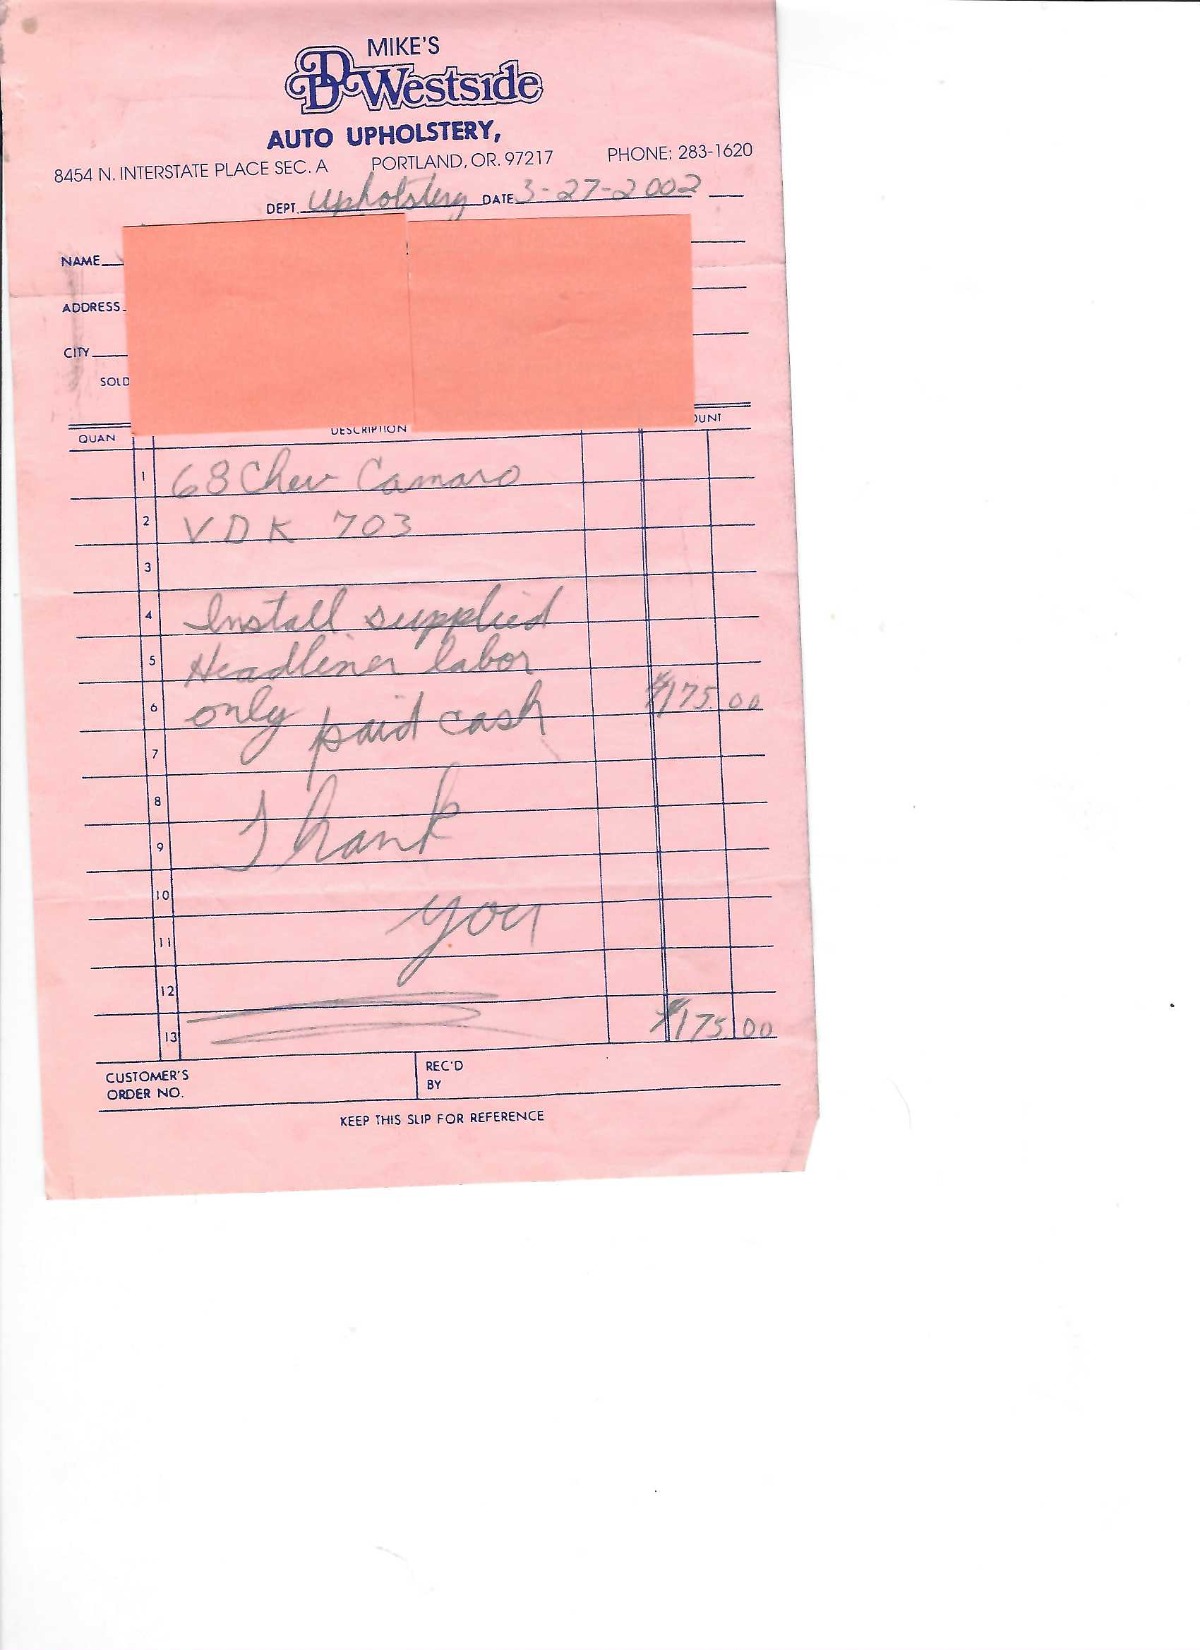 MIKE'S
D Westside
AUTO UPHOLSTERY,
8454 N. INTERSTATE PLACE SEC. A PORTLAND, OR. 97217 PHONE: 283-1620
DEPT. Upholsterg DATE 3-27-2002
NAME
ADDRESS
CITY
SOLD
QUAN DESCRIPTION OUNT
1 68 Chev Camaro
2 VDK 703
3
4 Install supplied
5 Headliner labor
6 only paid cash $175.00
7
8
9 Thank
10
11 you
12
13 $175.00
CUSTOMER'S REC'D
ORDER NO. BY
KEEP THIS SLIP FOR REFERENCE